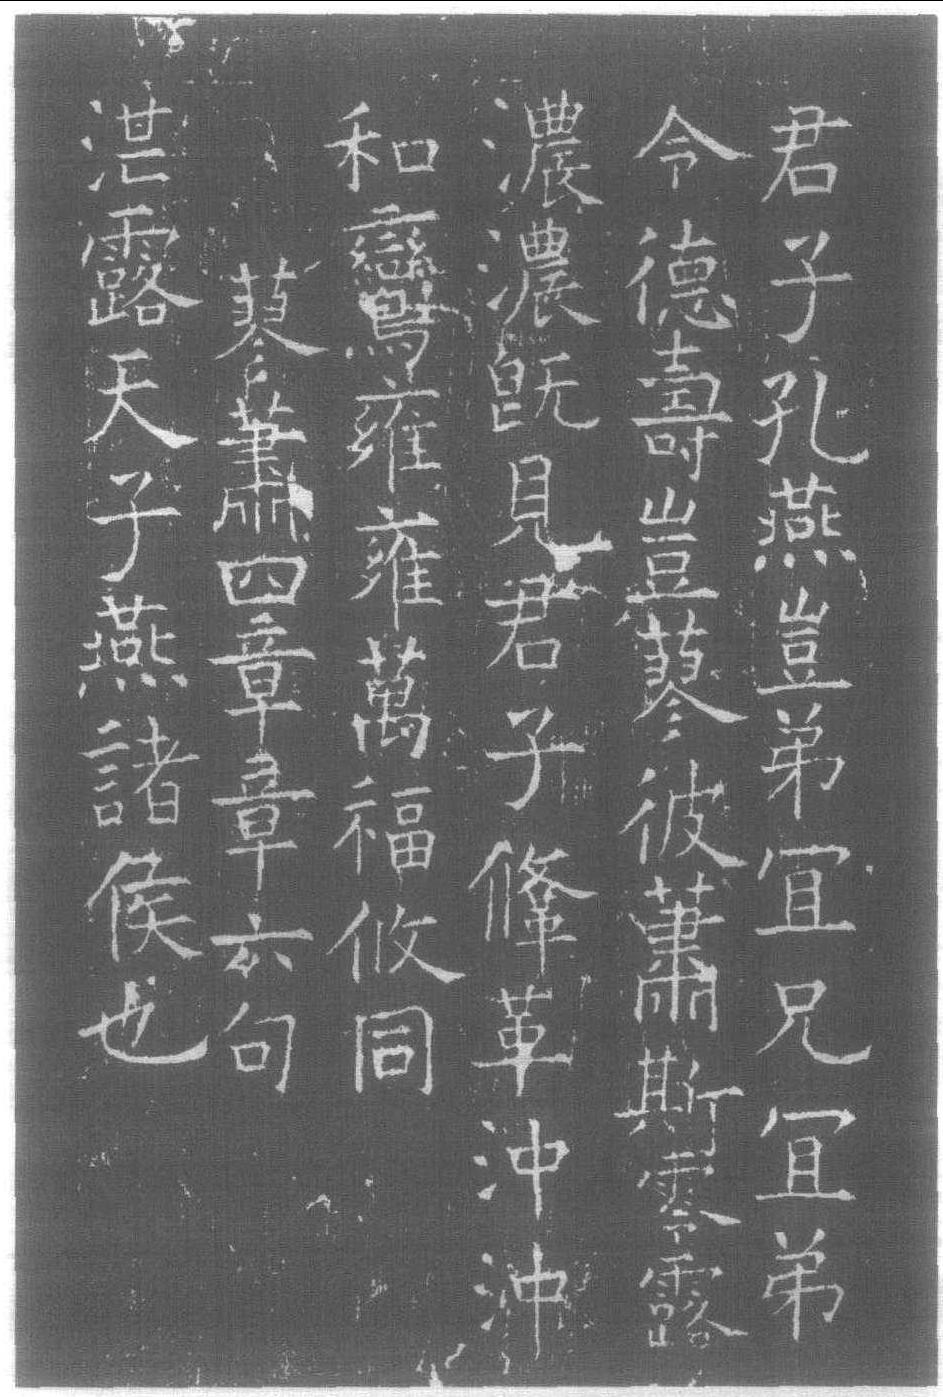 君子孔燕豈弟宜兄宜弟
令德壽豈蓼彼蕭斯零露
濃濃既見君子鞗革沖沖
和鸞雍雍萬福攸同
蓼蕭四章章六句
湛露天子燕諸侯也